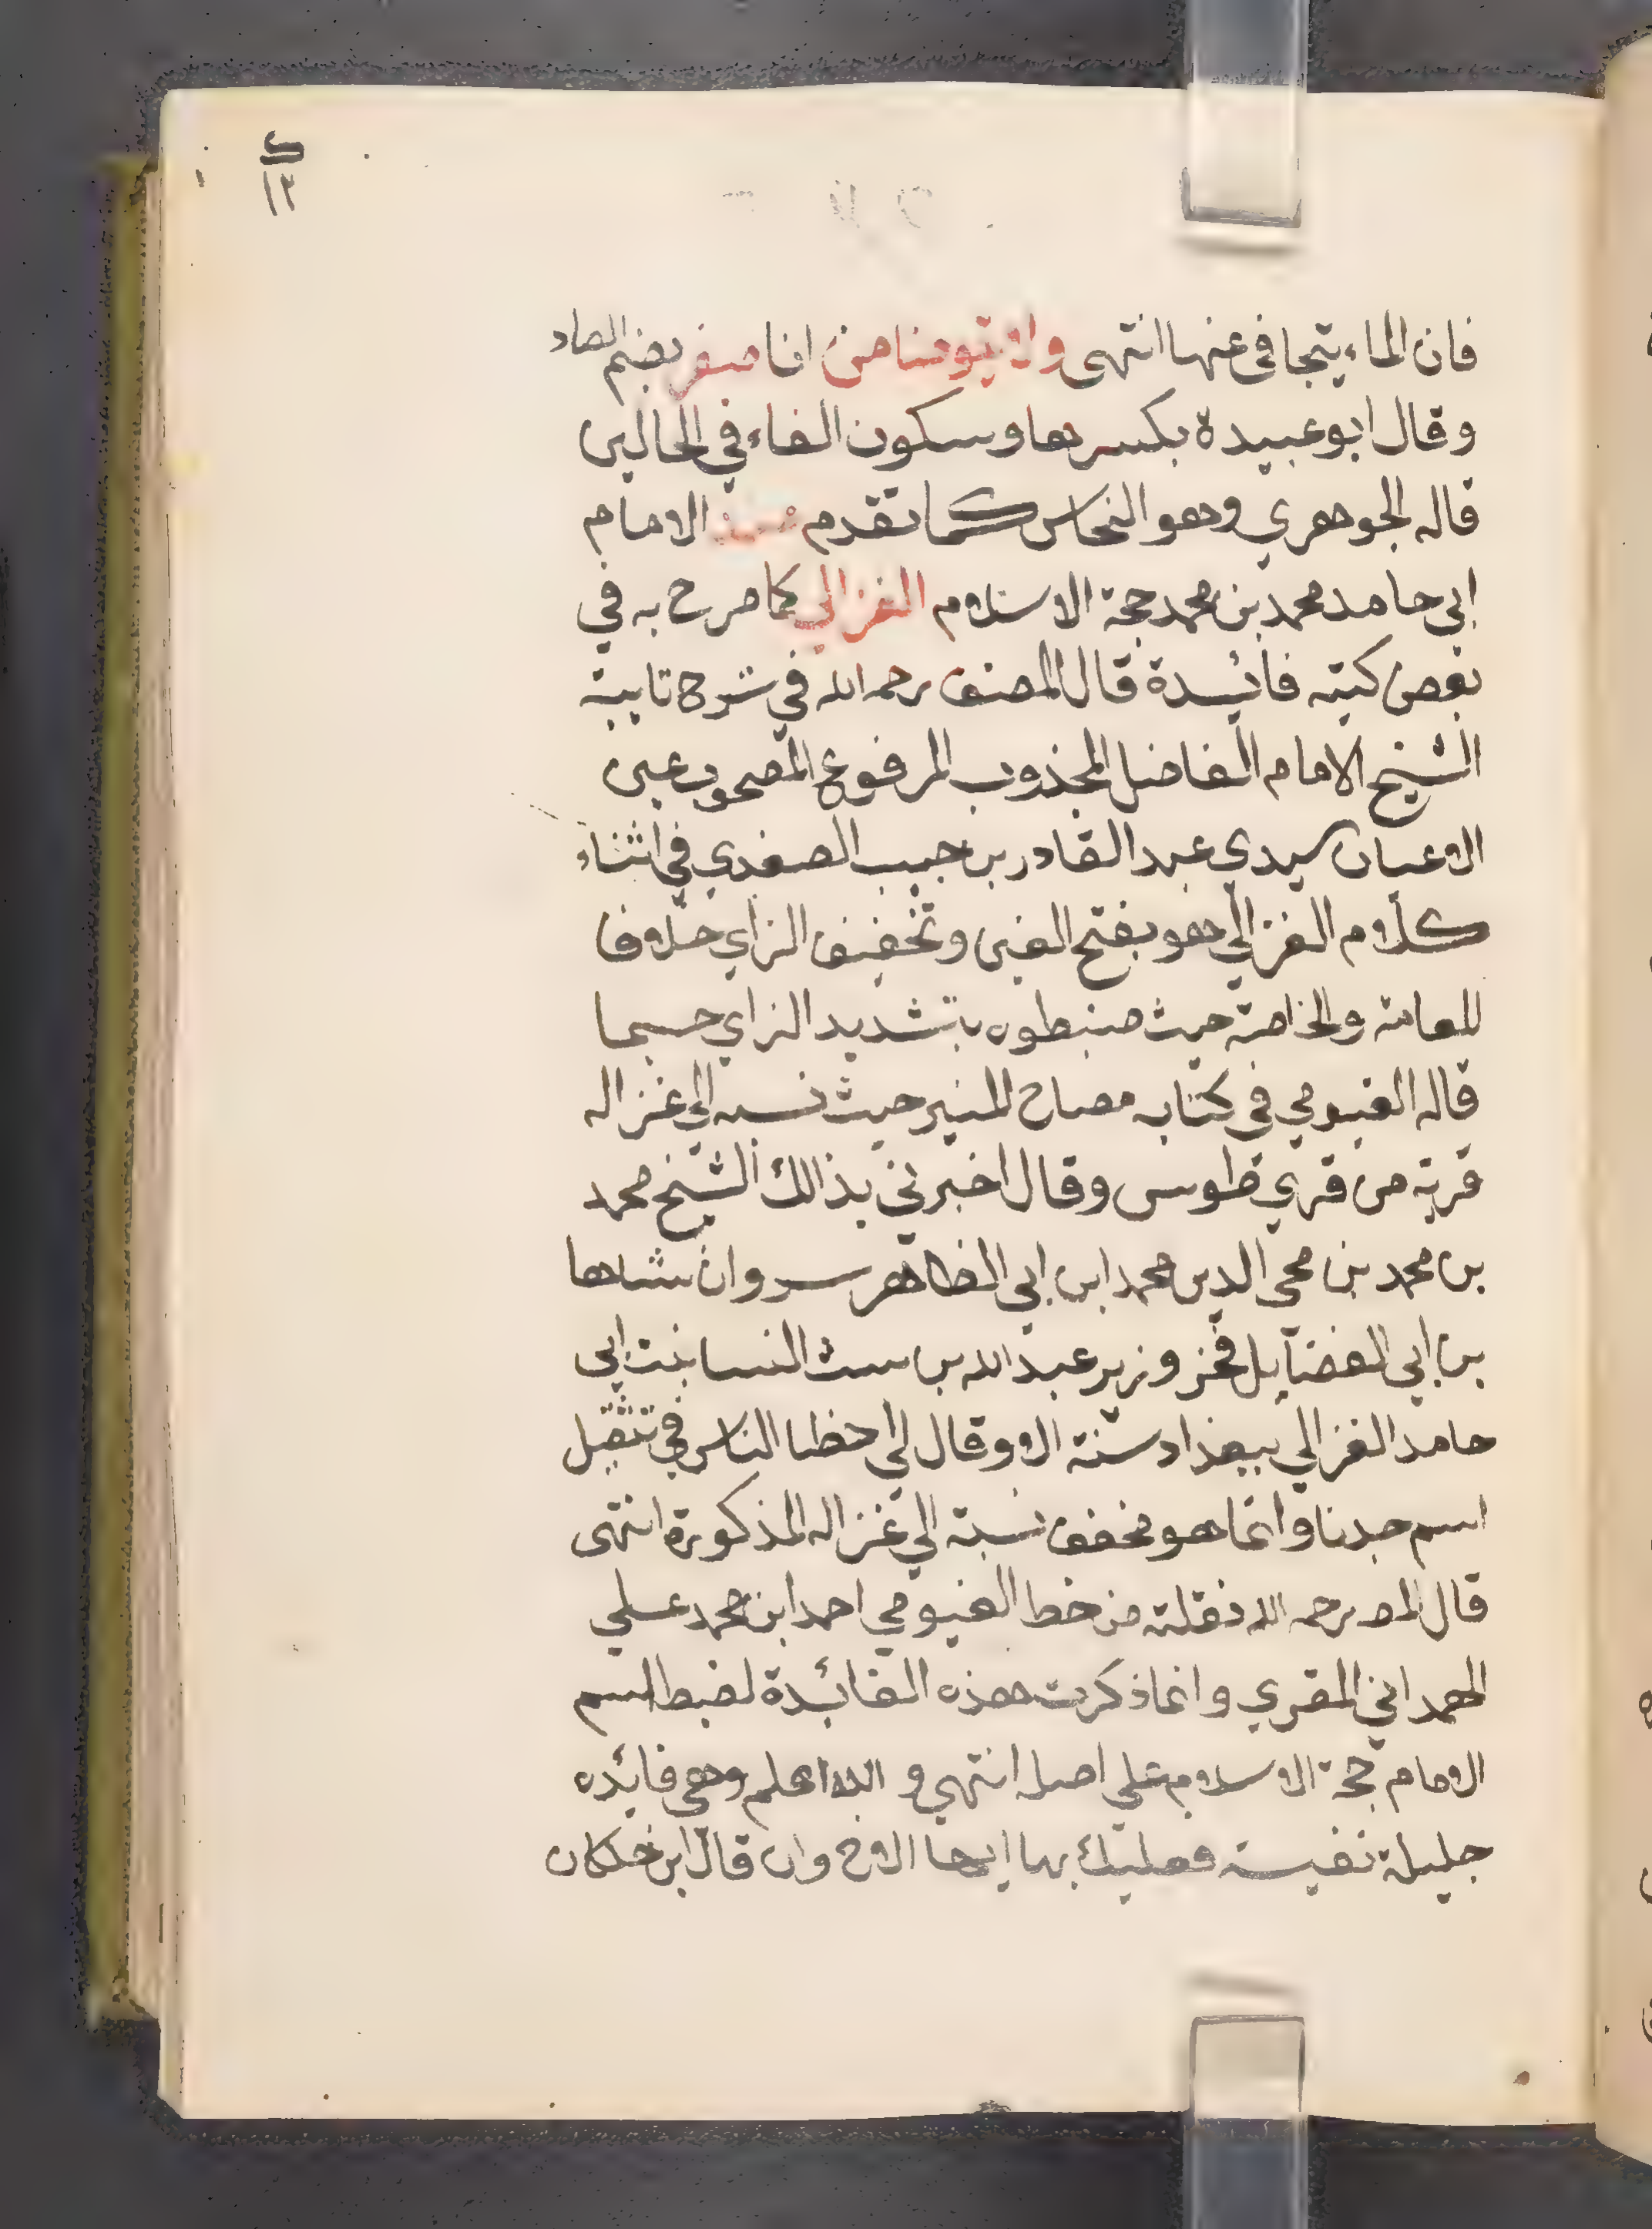 ١٣
فان الماء يتجافى عنها انتهى ولا يتوضا من انا صفر بضم الصاد
وقال ابو عبيدة بكسرها وسكون الفاء في الحالين
قاله الجوهري وهو النحاس كما تقدم الامام
ابي حامد محمد بن محمد حجة الاسلام الغزالي كما صرح به في
بعض كتبه فائدة قال المصنف رحمه الله في شرح تايية
الشيخ الامام الفاضل المجذوب المرفوع المصحوب عين
الاعيان سيدي عبد القادر بن حبيب الصفدي في اثناء
كلام الغزالي هو بفتح الغين وتخفيف الزاي خلافا
للعامة والخاصة حيث ضبطوه بتشديد الزاي حسبما
قاله الفيومي في كتابه مصباح المنير حيث نسبه الي غزاله
قرية من قري طوس وقال اخبرني بذالك الشيخ محمد
بن محمد بن محي الدين محمد ابن ابي الطاهر سروان شاها
بن ابي الفضايل فخر وزير عبد الله بن ست النسا بنت ابي
حامد الغزالي ببغداد سنة الا وقال لي اخطا الناس في تثقيل
اسم جدنا وانما هو مخفف نسبة الي غزاله المذكورة انتهى
قال المص رحمه الله نقلته من خط الفيومي احمد ابن محمد علي
الهمداني المقري وانما ذكرت هذه الفائدة لضبط اسم
الامام حجة الاسلام علي اصله انتهي و الله اعلم وهي فائده
جليلة نفيسة فعليك بها ايها الاخ وان قال ابن خلكان